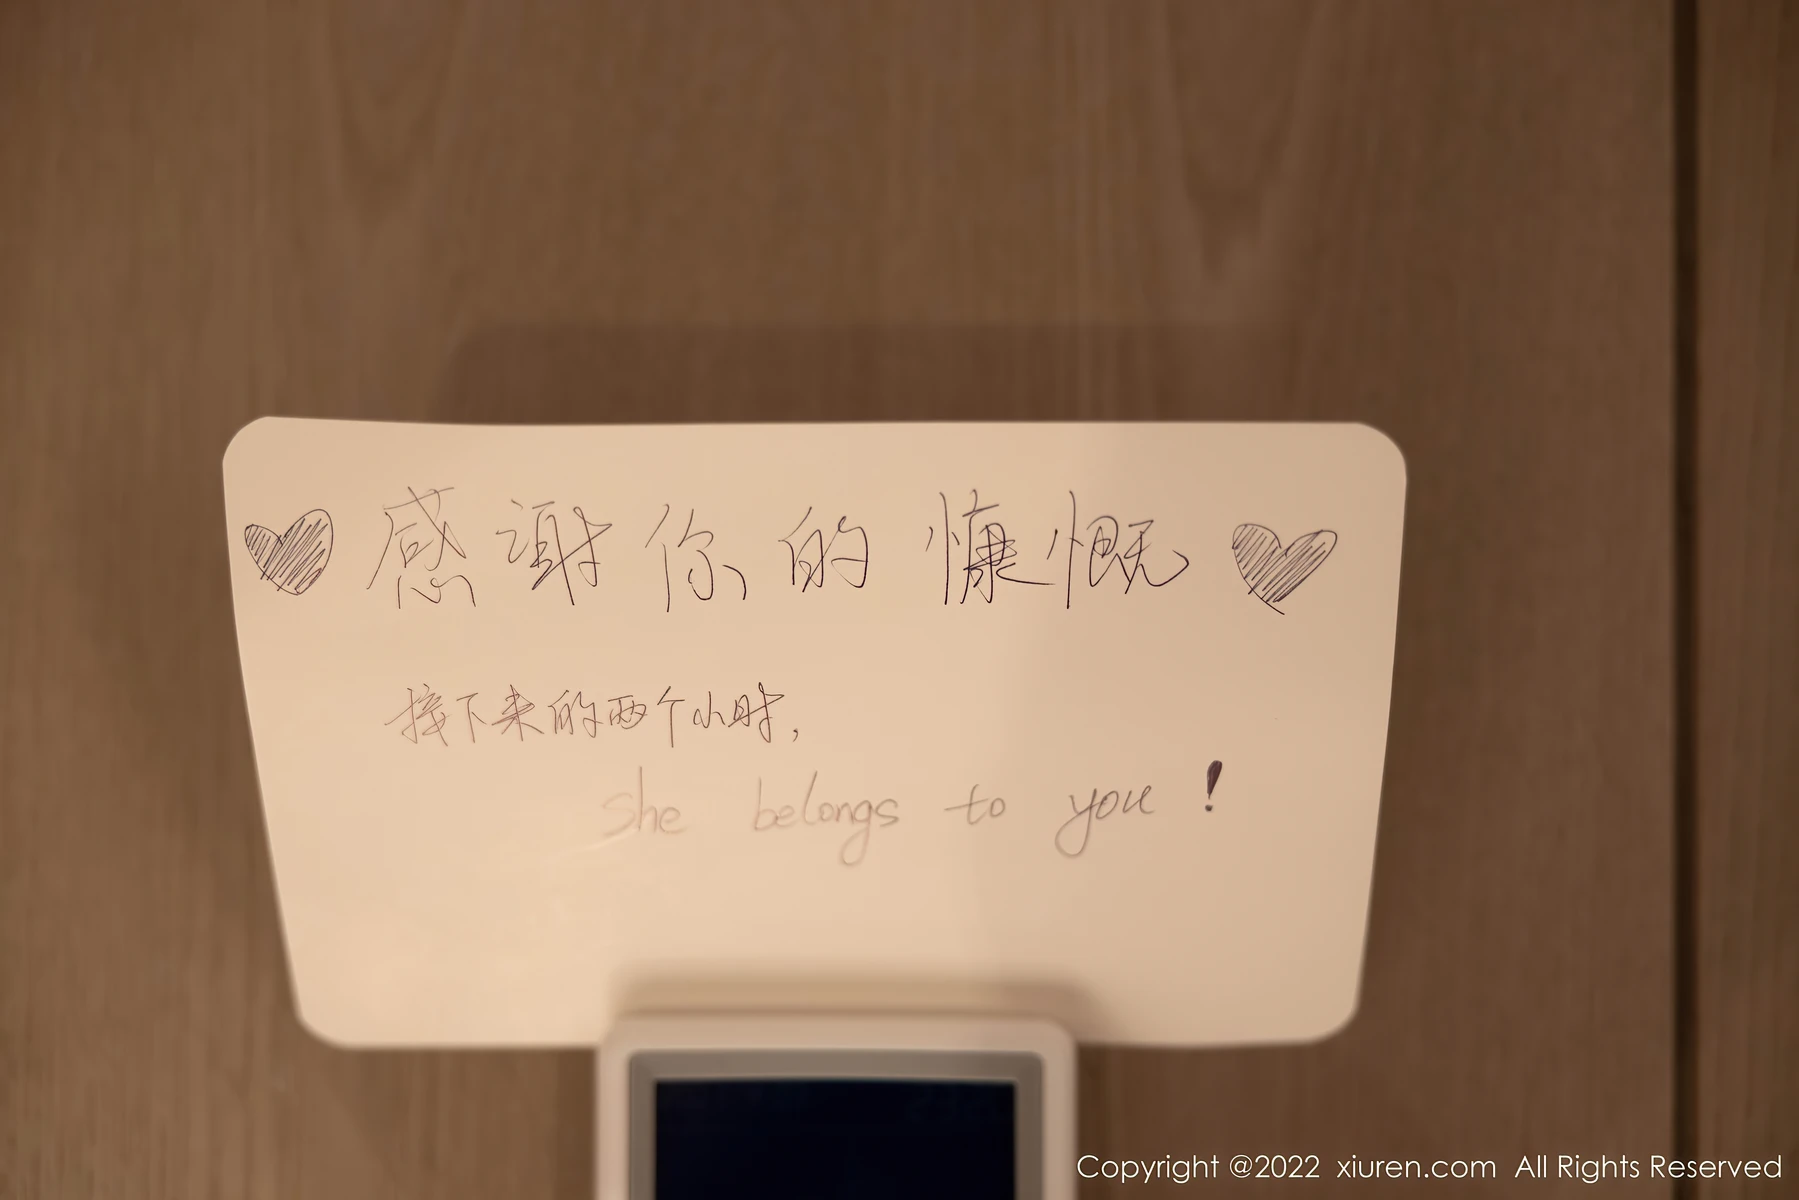 感谢你的慷慨
接下来的两个小时,
she belongs to you !
Copyright @2022 xiuren.com All Rights Reserved